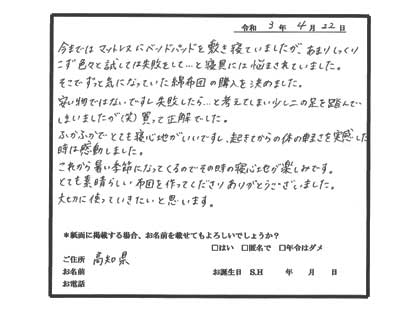 令和 3 年 4 月 22 日
今まではマットレスにベッドパッドを敷き寝ていましたが、あまりしっくり
こず色々と試しては失敗をして…と寝具には悩まされていました。
そこでずっと気になっていた綿布団の購入を決めました。
安い物ではないですし失敗したら…と考えてしまい少し二の足を踏んで
しまいましたが(笑)買って正解でした。
ふかふかでとても寝心地がいいですし、起きてからの体の軽さを実感した
時は感動しました。
これから暑い季節になってくるのでその時の寝心地が楽しみです。
とても素晴らしい布団を作ってくださりありがとうございました。
大切に使っていきたいと思います。
*紙面に掲載する場合、お名前を載せてもよろしいでしょうか?
□はい □匿名で □年令はダメ
ご住所 高知県
お名前 お誕生日 S.H 年 月 日
お電話